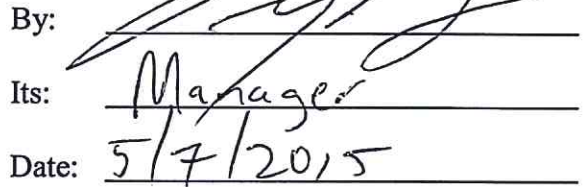 By:
Its: Manager
Date: 5/7/2015